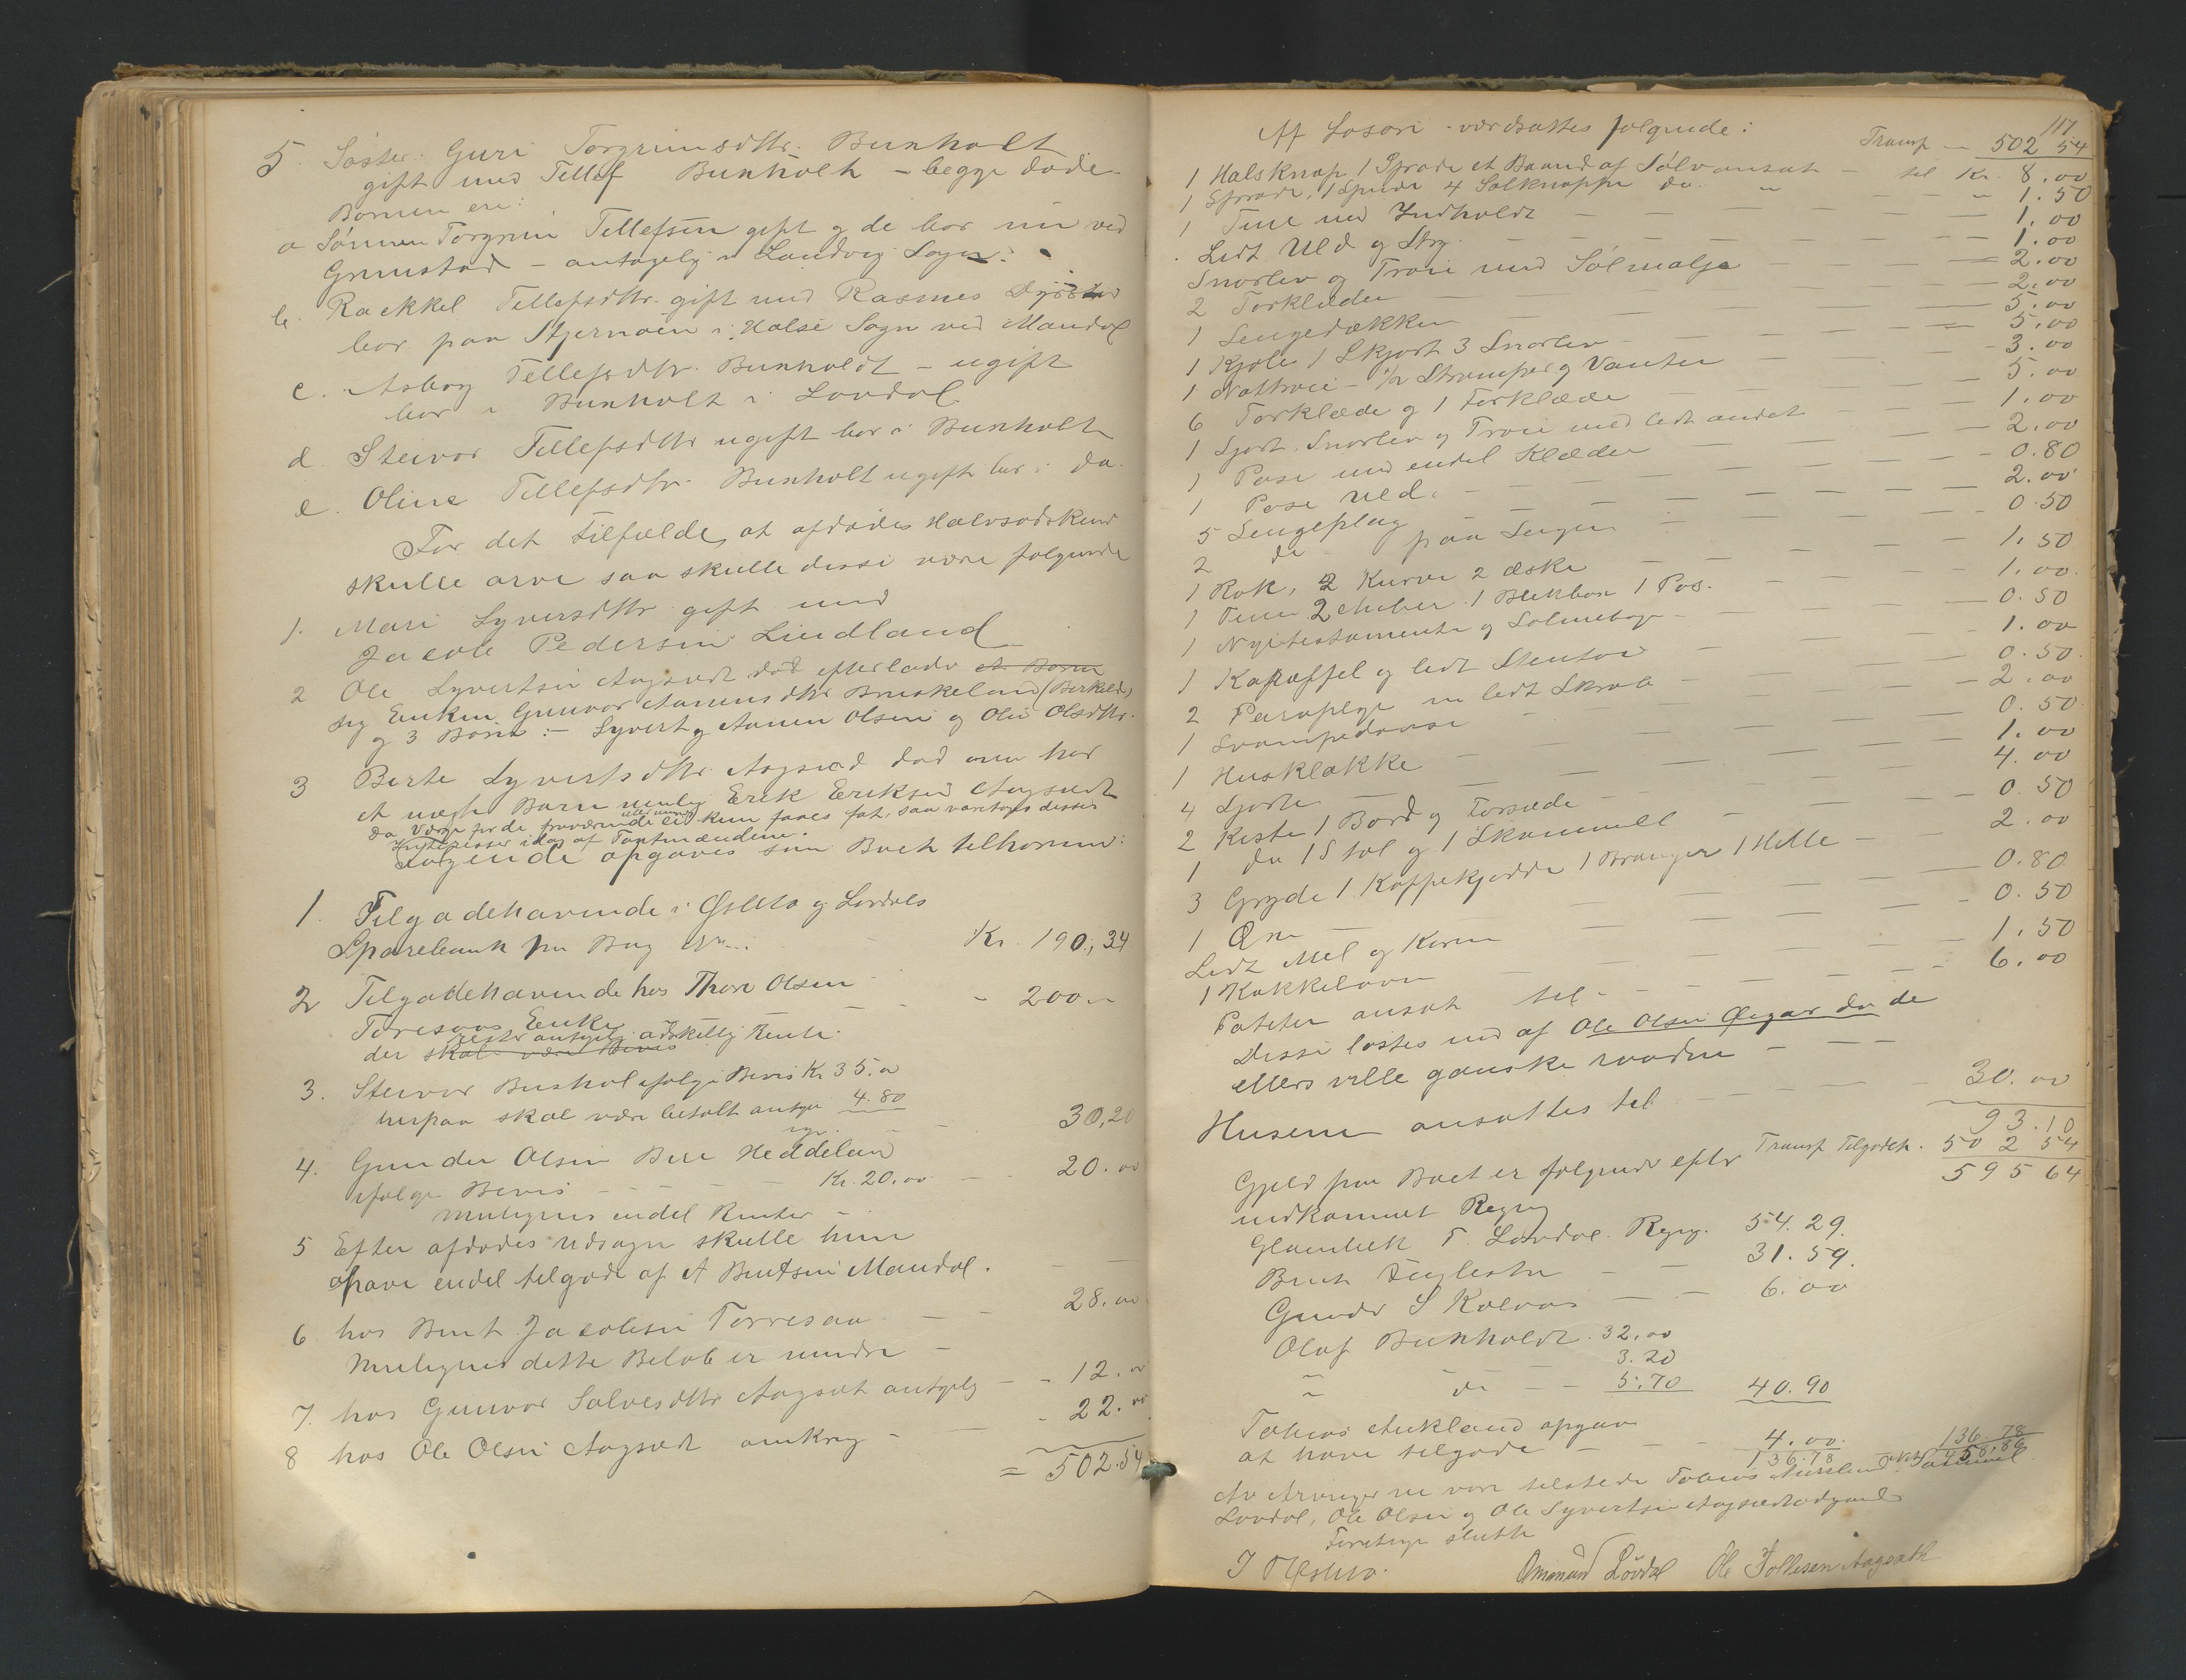 5. Søster: Guri Torgrimsdttr. Bunholt
gift med Tellef Bunholt – begge døde –
Børnen ere:
a Sønnen Torgrim Tellefsen gift og de bor nu ved
Grimstad – antagelig i Landvig Sogn.
b. Rackkel Tellefsdttr. gift med Rasmus
bor paa Stjernøen i Halse Sogn ved Mandal
c. Asborg Tellefsdtr. Bunholdt – ugift
bor i Bunholt i Løvdal
d. Steivor Tellefsdttr ugift bor i Bunholt
e. Oline Tellefsdtr. Bunholt ugift bor i do.
For det tilfælde, at afdødes Halvsødskend
skulle arve saa skulle disse være følgende
1. Mari Syversdttr gift med
Jacob Pedersen Lindland
2 Ole Syvertsen Aagsædt død efterlader et Barn
sig Enken Gunvor Aanensdttr Bruskeland (Birkeld)
og 3 Børn: – Syvert og Aanen Olsen og Olee Olsdttr.
3 Berte Syvertsdttr. Aagsæd død men har
et uægte Barn nemlig Erik Eriksen Aagsædt
da Værge for de fraværende eller umyn. ei kan faaes fat, saa varetages disses
Interesser idag af Taxtmændene.
Følgende opgaves som Boet tilhørende:
1. Tilgodehavende i Øslebø og Løvdals
Sparebank pr Bog No... Kr. 190,34
2 Tilgodehavende hos Thore Olsen
Toresaas Enke – 200 „
der skal være Bevis rester antagelig adskillig Rente.
3. Steivor Bunhol ifølge Bevis Kr 35.00
herpaa skal være betalt antage 4.80
30,20
4. Gunder Olsen Bue Heddeland
ifølge Bevis – – – – Kr. 20.00 – – 20.00
Muligens endel Renter –
5 Efter afdødes Udsagn skulle hun
have endel tilgode af A Bentsen Mandal. – –
6 hos Bent Jacobsen Torresaa – – 28.00
Muligens dette Beløb er mindre –
7. hos Gunvor Salvesdttr Aagsæt antagelig – – 12.00
8 hos Ole Olsen Aagsædt omkring – – 22.00
= 502.54
117
Af Løsøre værdsattes følgende: Transp – 502 54
1 Halsknap 1 Sprøde et Baand af Sølv ansat – til Kr. 8.00
1 Sprøde, 1 Spende 4 Sølknapper do. „ „ 1.50
1 Tine med Indholdt – – – 1.00
Lidt Uld og Stry. – – – 1.00
Snorliv og Trøie med Sølmalje – – 2.00
2 Tørklæder – – – 2.00
1 Sengedækken – – – 5.00
1 Kjole 1 Skjørt 3 Snorliv – – 5.00
1 Nattrøie – 1/2 Strømper og Vanter – – 3.00
6 Tørklæde og 1 Forklæde – – 5.00
1 Sjørt, Snorliv og Trøie med lidt andet – – 1.00
1 Pose med endel Klæder – – 2.00
1 Pose Uld. – – – 0.80
5 Sengeplag – – – 2.00
2 do paa Sengen – – 0.50
1 Rok, 2 Kurve 2 æske – – 1.50
1 Tine 2 Amber 1 Blikbox 1 Pos. – – 1.00
1 Nyitestamente og Salmebog – – 0.50
1 Kakaffel og lidt Stentøi – – 1.00
2 Paraplye m lidt Skrab – – 0.50
1 – – 2.00
1 Husklokke – – 0.50
4 Sjorte – – 1.00
2 Kister 1 Bord og Forsæde – – 4.00
1 do 1 Stol og 1 Skammell – – 0.50
3 Gryde 1 Kaffekjedde 1 Brænger 1 Helle – – 2.00
1 Øxe – – 0.80
Lidt Mel og Korn – – 0.50
1 Kakkelovn – – 1.50
Poteter ansat til – – 6.00
Disse løstes ind af Ole Olsen Øigar da de
ellers vilde ganske raadne – – –
Husene ansattes til – – 30.00
93.10
Transp Tilgodeh. 502 54
595 64
Gjeld paa Boet er følgende efter
indkommet Regng
T. Løvdal Regng. 54.29.
Bent – – 31.59.
Gunder S Kolaas – – 6.00
Olaf Bunholdt 32.00
3.20
„ do – – 5.70 40.90
Tobias Aukland opgav
at have tilgode – – 4.00.
136.78 136.78
458.86
Av Arvingerne vare tilstede Tobias Aukland, Samuel
Løvdal, Ole Olsen og Ole Syvertsen Aagsædt
Forretnge sluttet
Omund Løvdal Ole Tollesen Aagsæth